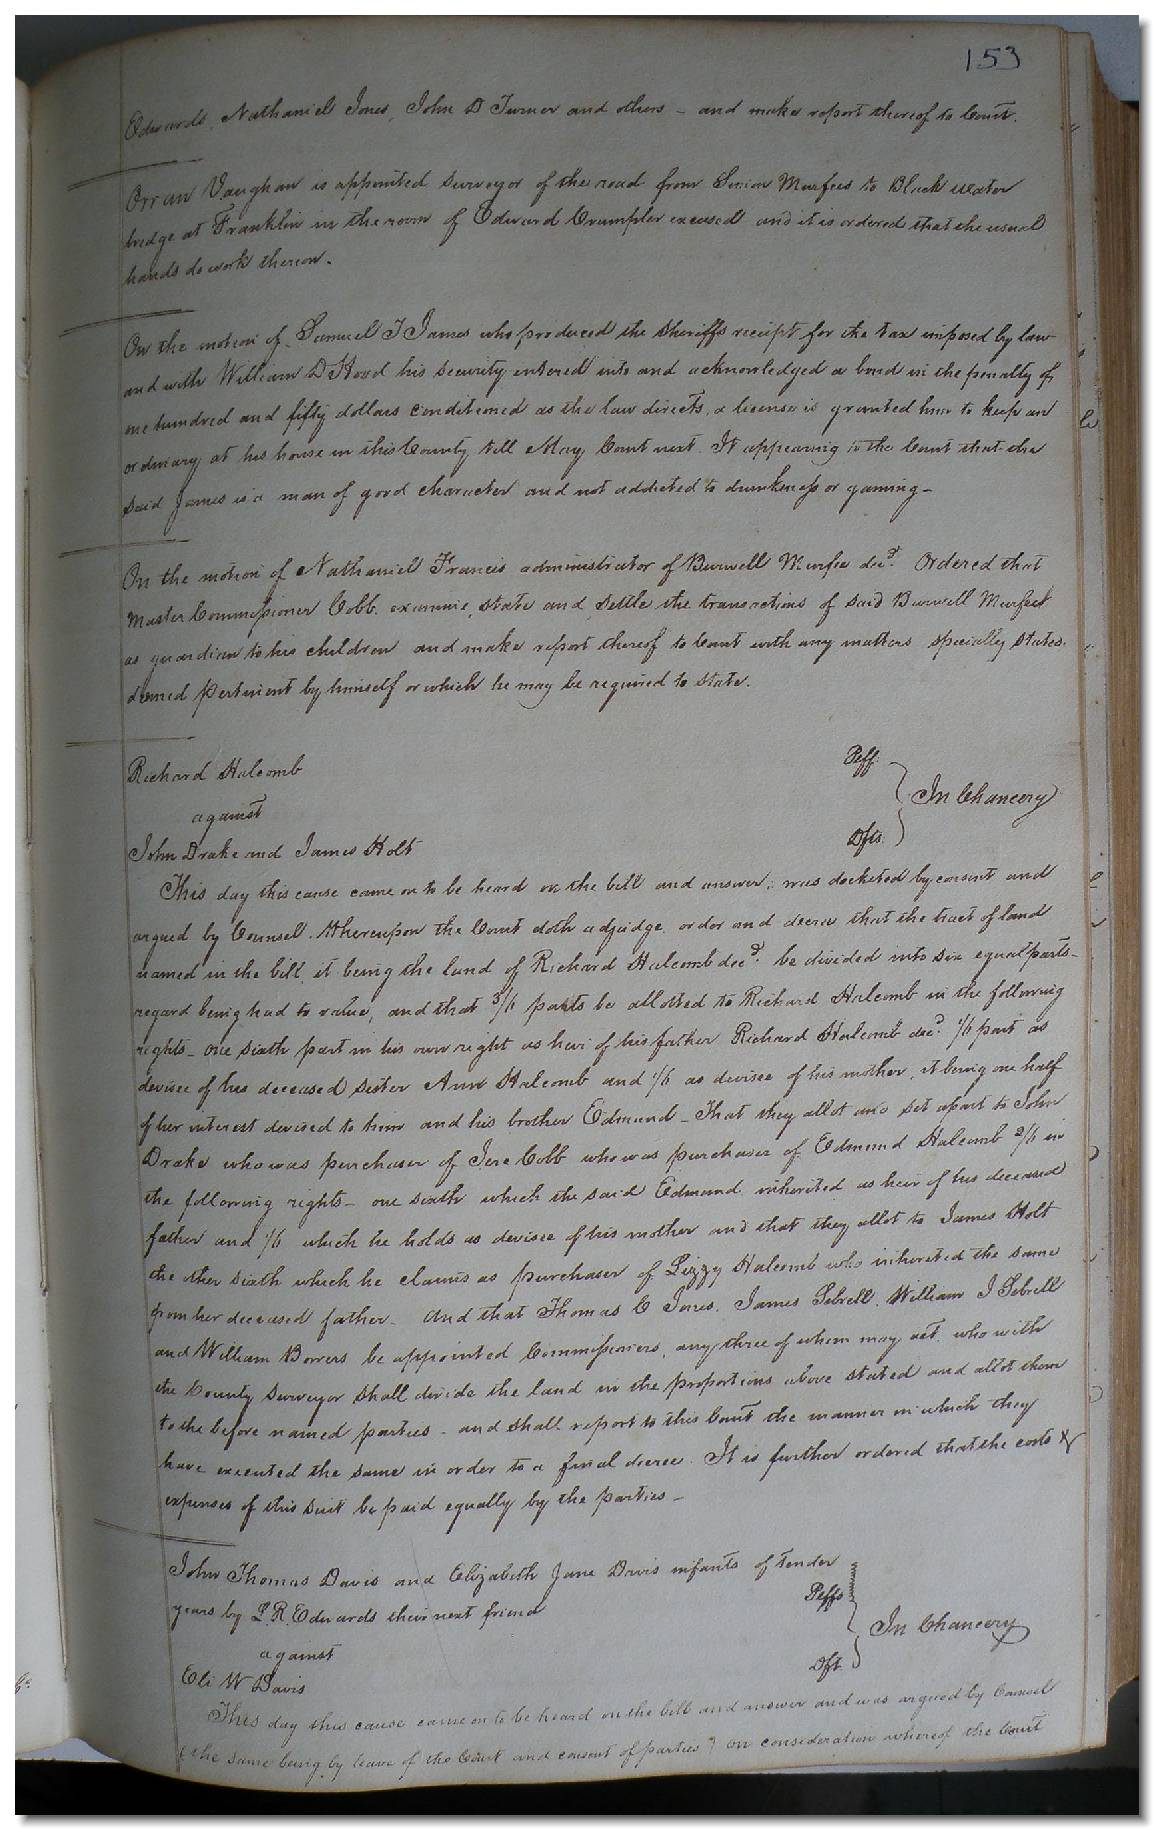 153
Edwards, Nathaniel Jones, John D Turner and others - and make report thereof to Court.
Orran Vaughan is appointed surveyor of the road from Simon Murfees to Black water
bridge at Franklin in the room of Edward Crumpler excused and it is ordered that the usual
hands do work thereon.
On the motion of Samuel T James who produced the Sheriffs receipt for the tax imposed by law
and with William D Hood his security entered into and acknowledged a bond in the penalty of
one hundred and fifty dollars conditioned as the law directs, a license is granted him to keep an
ordinary at his house in this County till May Court next. It appearing to the Court that the
said James is a man of good character and not addicted to drunkeness or gaming -
On the motion of Nathaniel Francis administrator of Burwell Murfee decd. Ordered that
Master Commissioner Cobb examine, state and settle the transactions of said Burwell Murfee
as guardian to his children and make report thereof to Court with any matters specially stated
deemed pertinent by himself or which he may be required to state.
Richard Halcomb Peff.
against In Chancery
John Drake and James Holt Dfts.
This day this cause came on to be heard on the bill and answer, was docketed by consent and
argued by Counsel. Whereupon the Court doth adjudge order and decree that the tract of land
named in the bill, it being the land of Richard Halcomb decd. be divided into six equal parts -
regard being had to value, and that 3/6 parts be allotted to Richard Halcomb in the following
rights - one sixth part in his own right as heir of his father Richard Halcomb decd. 1/6 part as
devisee of his deceased sister Ann Halcomb and 1/6 as devisee of his mother, it being one half
of her interest devised to him and his brother Edmund - That they allot and set apart to John
Drake who was purchaser of Jere Cobb who was purchaser of Edmund Halcomb 2/6 in
the following rights - one sixth which the said Edmund inherited as heir of his deceased
father and 1/6 which he holds as devisee of his mother and that they allot to James Holt
the other sixth which he claims as purchaser of Lizzy Halcomb who inherited the same
from her deceased father - And that Thomas C Jones, James Sebrell, William J Sebrell
and William Bowers be appointed Commissioners, any three of whom may act, who with
the County Surveyor shall divide the land in the proportions above stated and allot them
to the before named parties - and shall report to this Court the manner in which they
have executed the same in order to a final decree. It is further ordered that the costs &
expenses of this suit be paid equally by the parties -
John Thomas Davis and Elizabeth Jane Davis infants of tender
years by L. R. Edwards their next friend Peffs
against In Chancery
Eli W Davis Dft.
This day this cause came on to be heard on the bill and answer and was argued by Counsel
(the same being by leave of the Court and consent of parties) on consideration whereof the Court